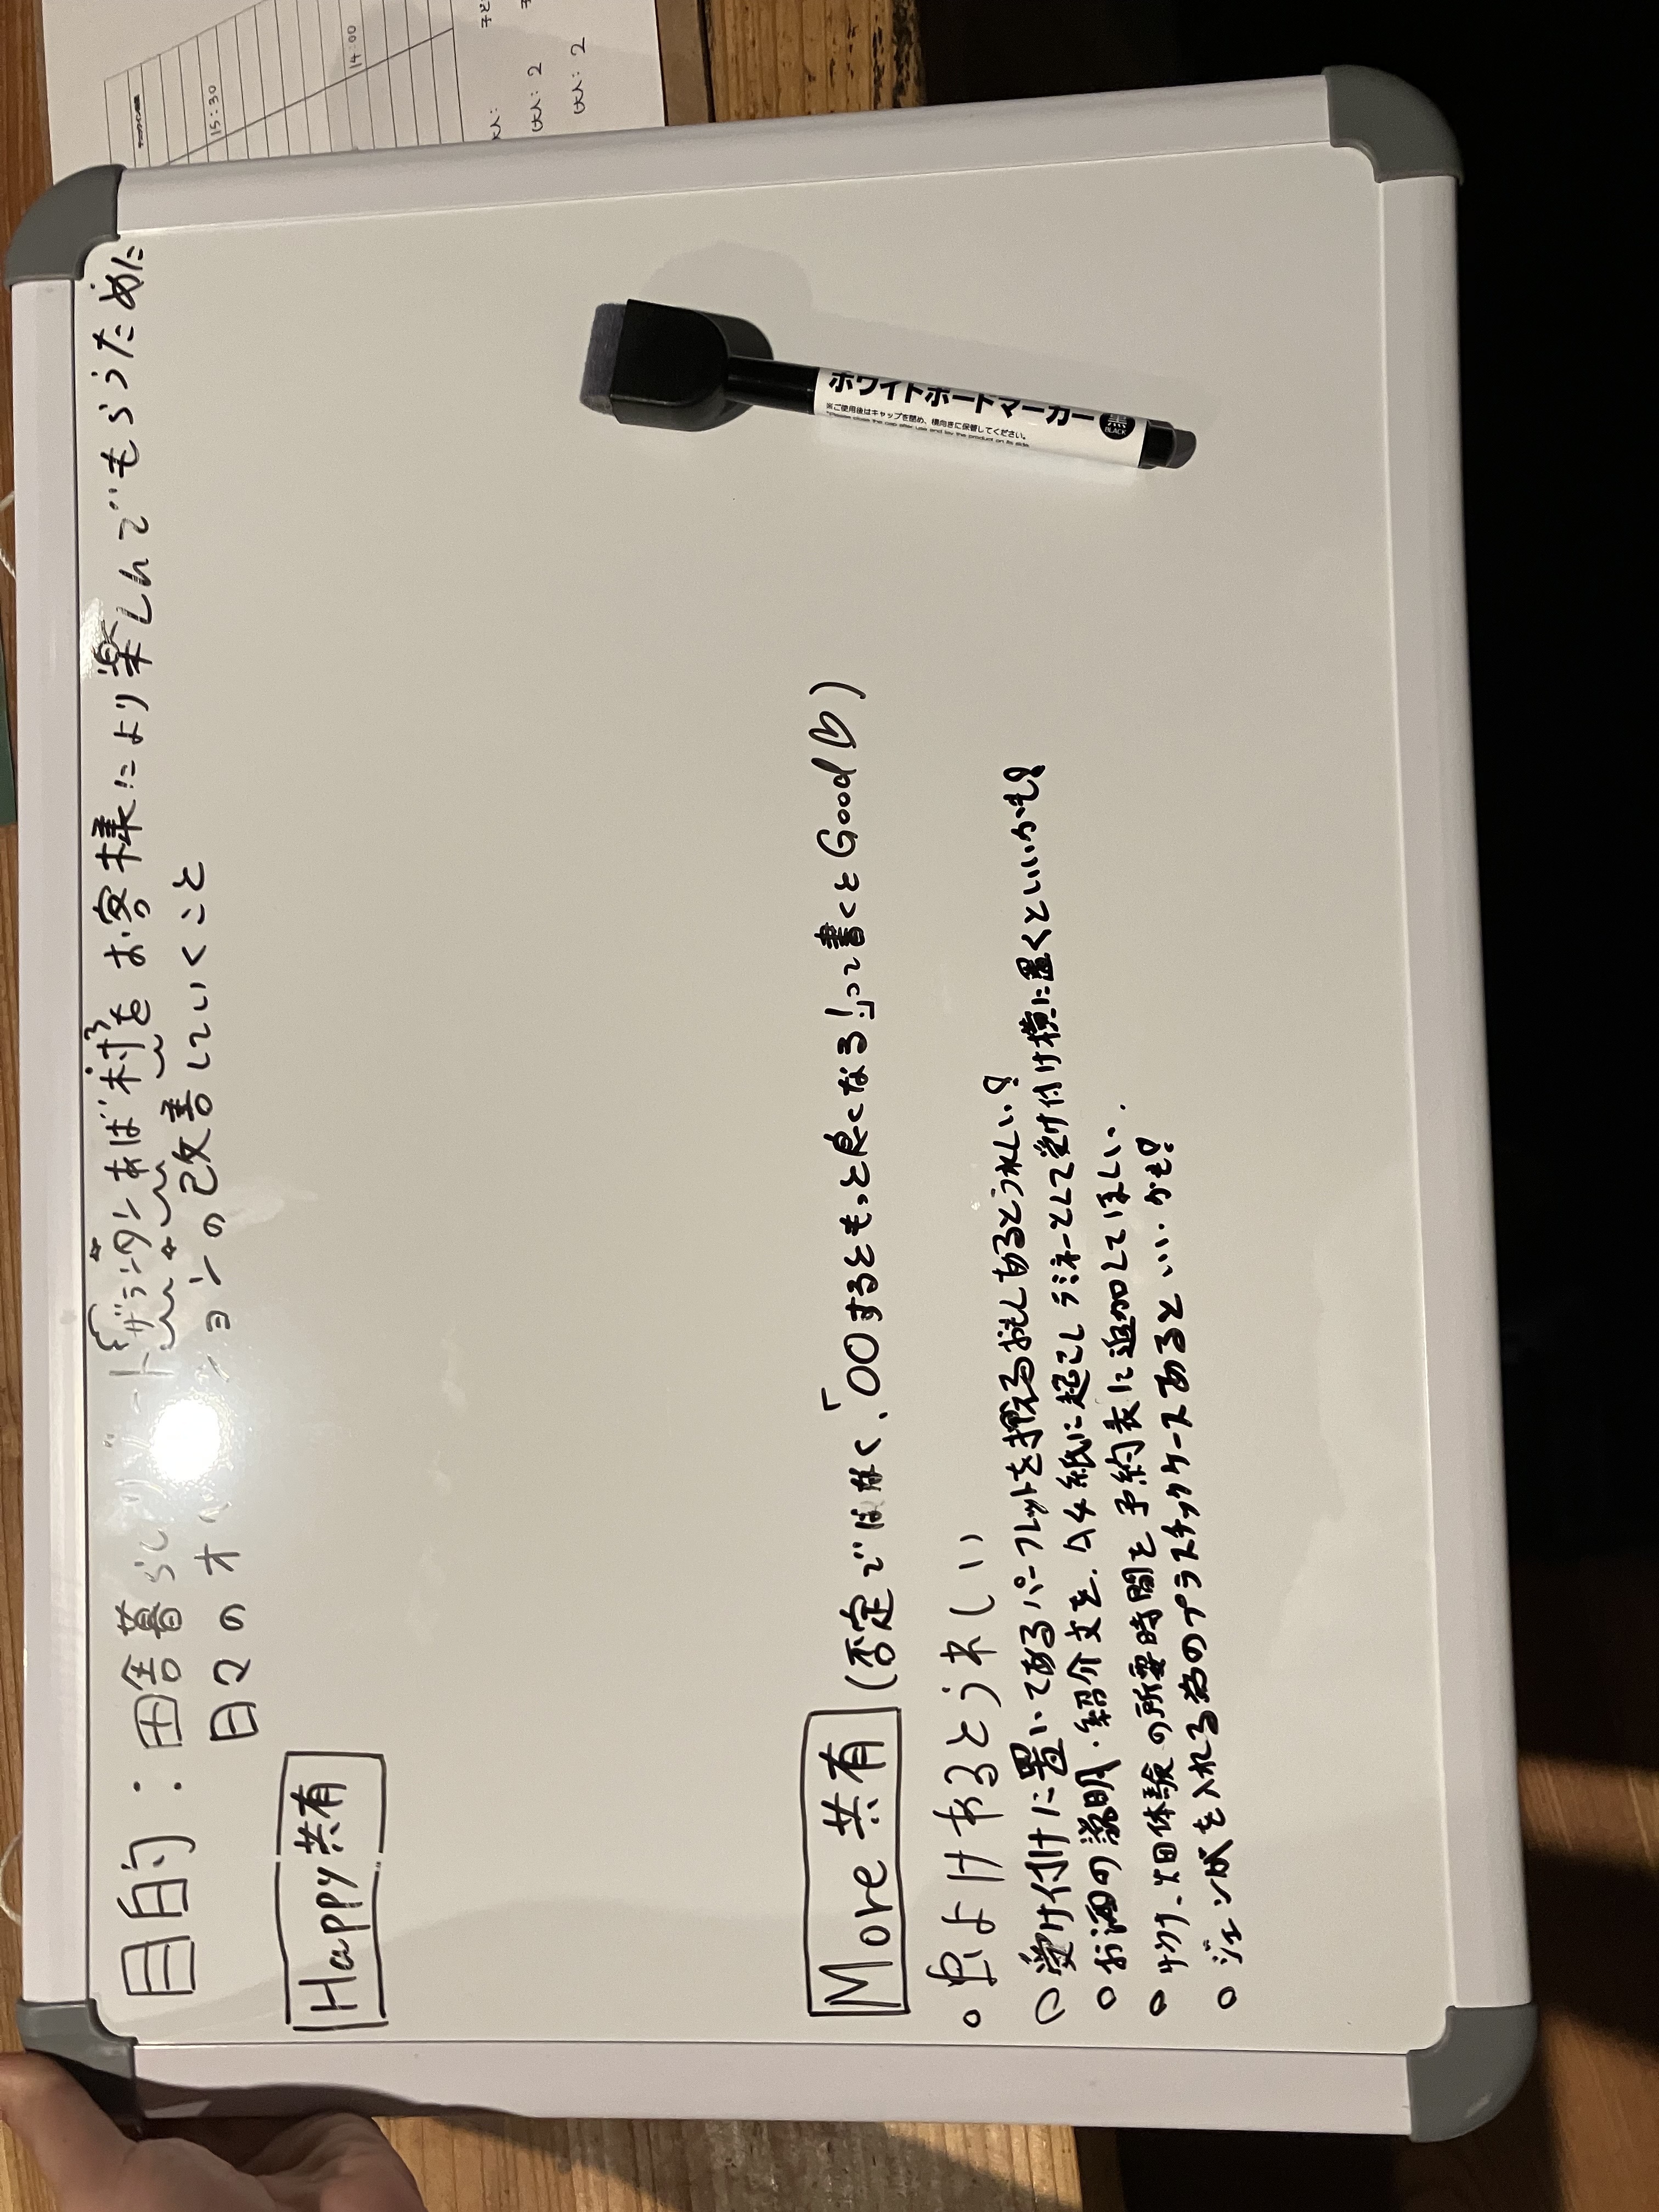 目的：田舎暮らしリゾート{ザランタンあば村}をお客様により楽しんでもらうために
日々のオペ ションの改善していくこと
Happy共有
More共有 (否定ではなく、「○○するともっと良くなる!」って書くとGood♡)
○ 虫よけあるとうれしい
○ 受け付けに置いてあるパーフレットを押えるおもしあるとうれしい!
○ お酒の説明・紹介文を、A4紙に起こしラミネートして受け付け横に置くといいかも!
○ サウナ、畑体験の所要時間を予約表に追加してほしい.
○ ジェンガを入れる為のプラスチックケースあるといいかも!
ホワイトボードマーカー 黒
BLACK
※ご使用後はキャップを閉め、横向きに保管してください。
*Please close the cap after use and lay the product on its side.
15:30
14:00
大人:
大人: 2
大人: 2